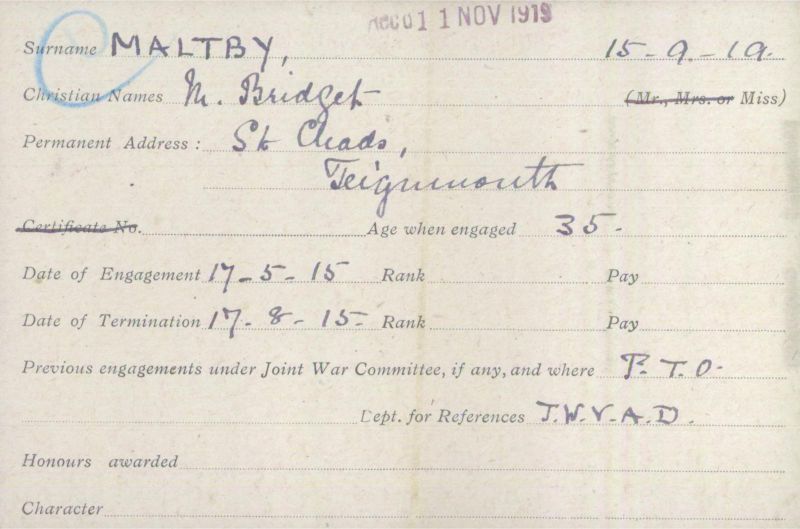 Recd 11 NOV 1919
Surname MALTBY, 15-9-19.
Christian Names M. Bridget (Mr., Mrs. or Miss)
Permanent Address: St Chads,
Teignmouth
Certificate No. Age when engaged 35-
Date of Engagement 17-5-15 Rank Pay
Date of Termination 17-8-15- Rank Pay
Previous engagements under Joint War Committee, if any, and where P.T.O-
Dept. for References J.W.V.A.D.
Honours awarded
Character